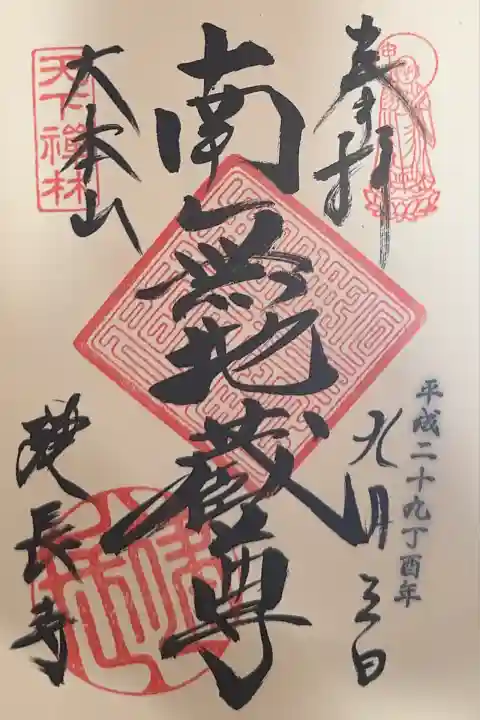 奉拝
平成二十九丁酉年
九月三日
南無地蔵尊
大本山
建長寺
天下禪林